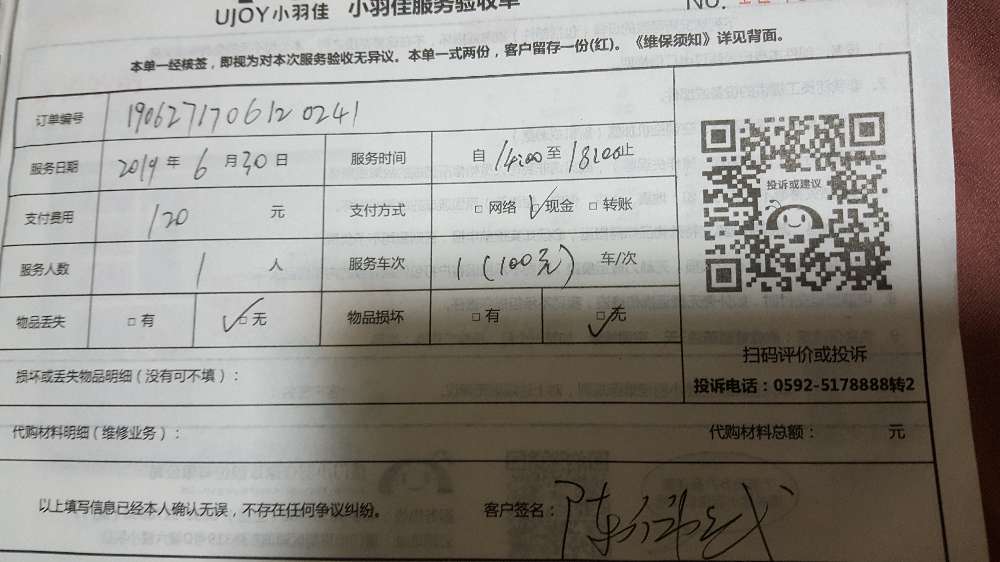 UJOY小羽佳 小羽佳服务验收单
NO.
本单一经核签，即视为对本次服务验收无异议。本单一式两份，客户留存一份(红)。《维保须知》详见背面。
订单编号 190627170612 0241
服务日期 2019 年 6 月 30 日 服务时间 自 14:00 至 18:00 止
支付费用 120 元 支付方式 □ 网络 ☑ 现金 □ 转账
服务人数 1 人 服务车次 1 (100元) 车/次
物品丢失 □ 有 ☑ 无 物品损坏 □ 有 ☑ 无
投诉或建议
扫码评价或投诉
投诉电话：0592-5178888转2
损坏或丢失物品明细（没有可不填）：
代购材料明细（维修业务）： 代购材料总额： 元
以上填写信息已经本人确认无误，不存在任何争议纠纷。 客户签名：陈